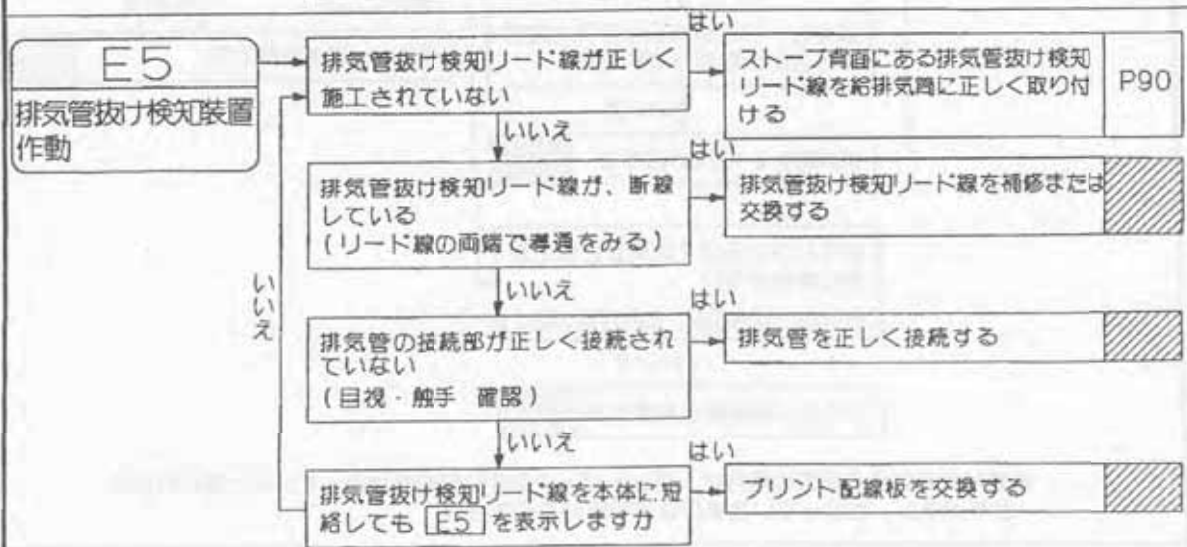 E5
排気管抜け検知装置
作動
排気管抜け検知リード線が正しく
施工されていない
はい
ストーブ背面にある排気管抜け検知
リード線を給排気筒に正しく取り付
ける
P90
いいえ
排気管抜け検知リード線が、断線
している
(リード線の両端で導通をみる)
はい
排気管抜け検知リード線を補修または
交換する
いいえ
排気管の接続部が正しく接続され
ていない
(目視・触手 確認)
はい
排気管を正しく接続する
いいえ
排気管抜け検知リード線を本体に短
絡しても E5 を表示しますか
はい
プリント配線板を交換する
いいえ